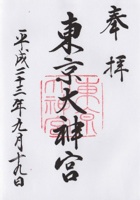 奉拝
東京大神宮
平成二十三年九月十九日